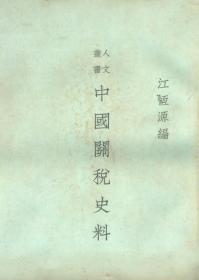 江恆源編
人文叢書
中國關稅史料